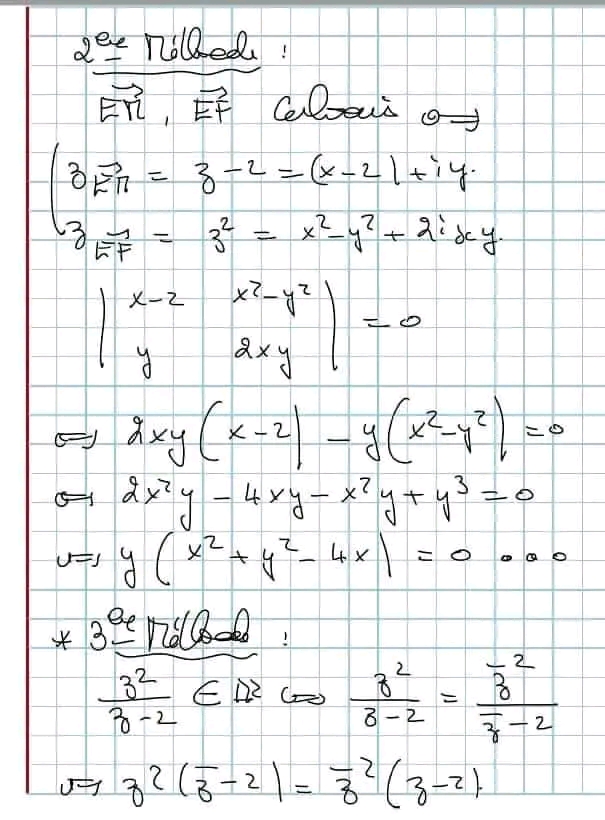 2ème Méthode :
$\overrightarrow{EM}$, $\overrightarrow{EF}$ colinéaires ⟺
$z_{\overrightarrow{EM}} = z - 2 = (x-2) + iy.$
$z_{\overrightarrow{EF}} = z^2 = x^2 - y^2 + 2ixy.$
$\begin{vmatrix} x-2 & x^2-y^2 \\ y & 2xy \end{vmatrix} = 0$
⟺ $2xy(x-2) - y(x^2-y^2) = 0$
⟺ $2x^2y - 4xy - x^2y + y^3 = 0$
⟺ $y(x^2 + y^2 - 4x) = 0$ ...
* 3ème Méthode :
$\frac{z^2}{z-2} \in \mathbb{R}$ ⟺ $\frac{z^2}{z-2} = \frac{\bar{z}^2}{\bar{z}-2}$
⟺ $z^2(\bar{z}-2) = \bar{z}^2(z-2).$